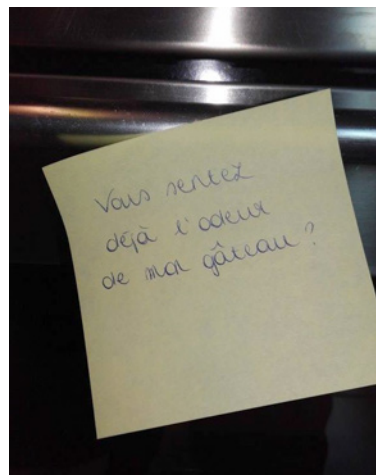 Vous sentez
déjà l'odeur
de mon gâteau?